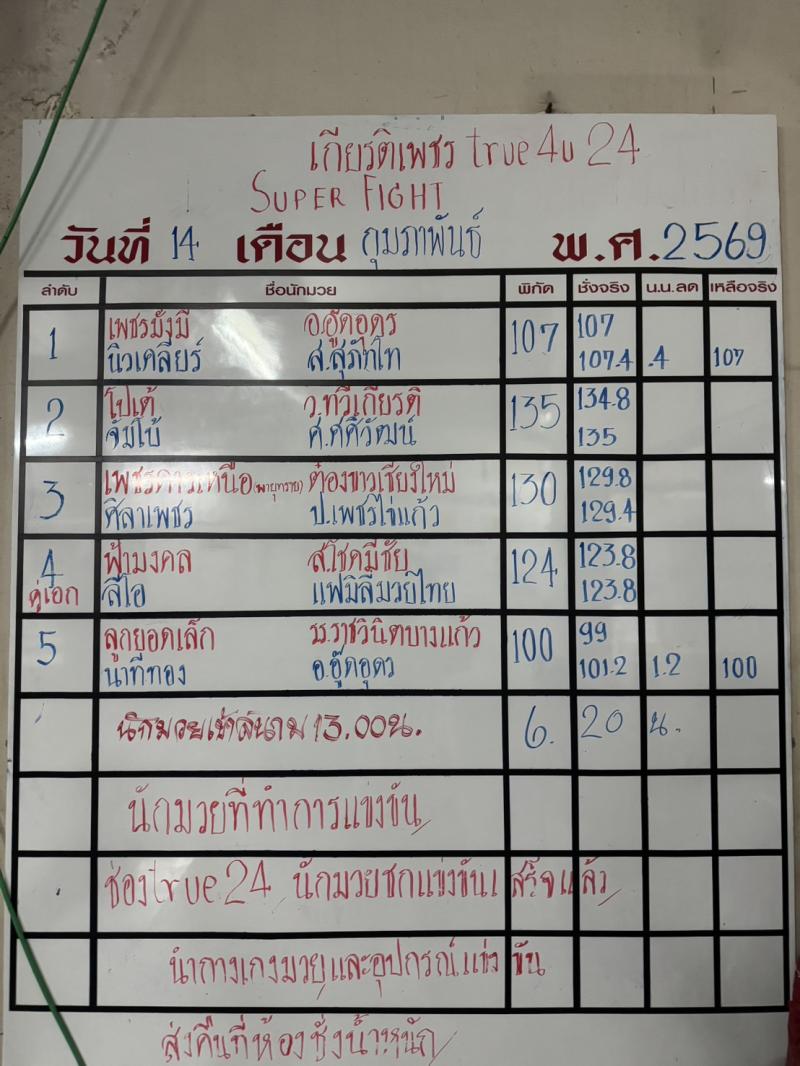 เกียรติเพชร true 4u 24
SUPER FIGHT
วันที่ 14 เดือน กุมภาพันธ์ พ.ศ. 2569
ลำดับ ชื่อนักมวย พิกัด ชั่งจริง น.น.ลด เหลือจริง
1 เพชรมั่งมี อ.อู๊ดอุดร 107 107
นิวเคลียร์ ส.สุภัทโท 107.4 .4 107
2 โปเต้ ว.ทวีเกียรติ 135 134.8
จัมโบ้ ศ.ศศิวัฒน์ 135
3 เพชรดาวเหนือ (พายุทราย) ต๋องขาวเชียงใหม่ 130 129.8
ศิลาเพชร ป.เพชรไข่แก้ว 129.4
4 ฟ้ามงคล ส.โชคมีชัย 124 123.8
คู่เอก ลีโอ แฟมิลี่มวยไทย 123.8
5 ลูกยอดเล็ก รร.ราชวินิตบางแก้ว 100 99
นาทีทอง อ.อู๊ดอุดร 101.2 1.2 100
นักมวยเข้าสนาม 13.00น. 6. 20 น.
นักมวยที่ทำการแข่งขัน
ช่อง true 24 นักมวยชกแข่งขันเสร็จแล้ว
นำกางเกงมวยและอุปกรณ์แข่งขัน
ส่งคืนที่ห้องชั่งน้ำหนัก